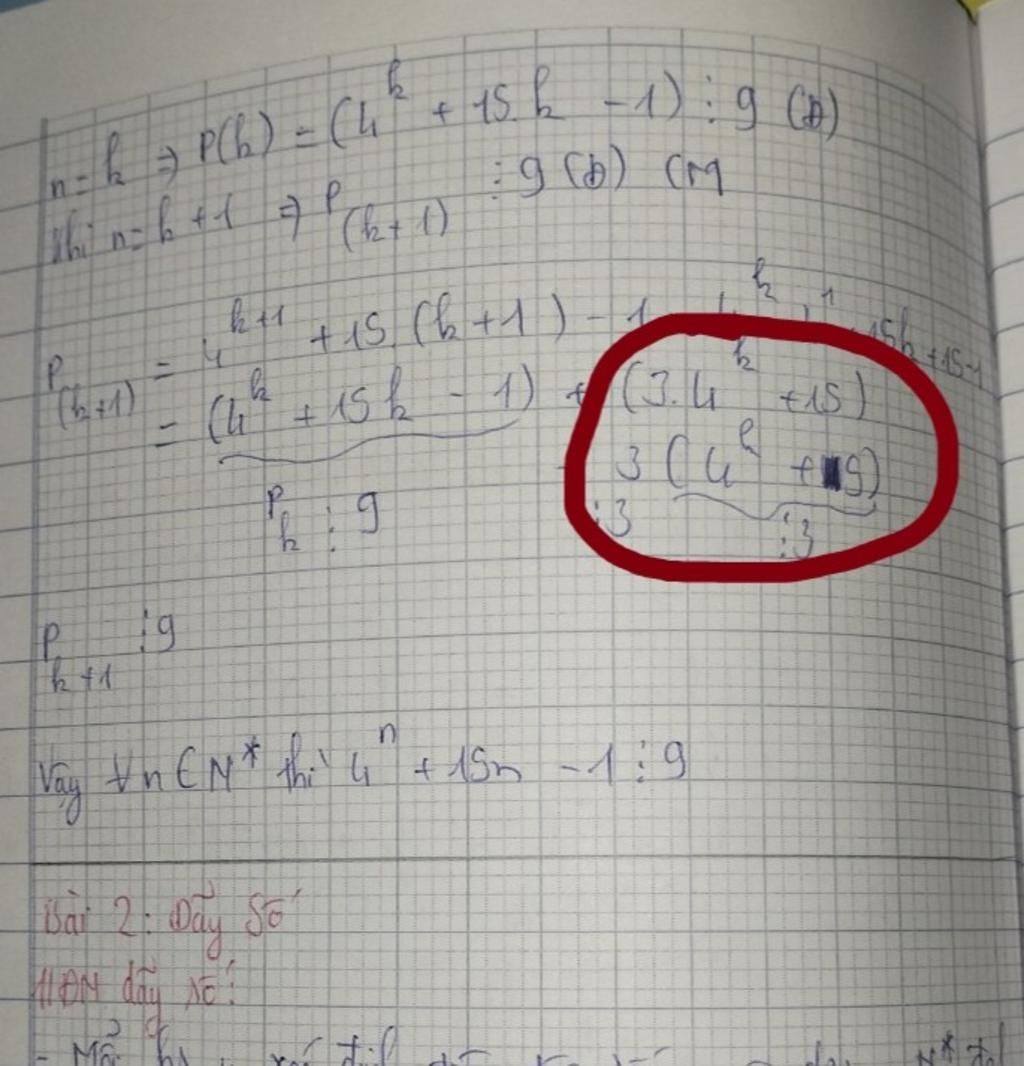 n = k ⇒ P(k) = (4^k + 15.k - 1) ⋮ 9 (Đ)
Khi n = k + 1 ⇒ P(k+1) ⋮ 9 (Đ) CM
P(k+1) = 4^{k+1} + 15(k+1) - 1 4^k . 1 15k + 15 - 1
= (4^k + 15k - 1) + (3.4^k + 15)
3(4^k + 9)
P_k ⋮ 9 ⋮3 ⋮3
P_{k+1} ⋮ 9
Vậy ∀n ∈ N* thì 4^n + 15n - 1 ⋮ 9
Bài 2: Dãy Số
dãy số:
- Mỗi